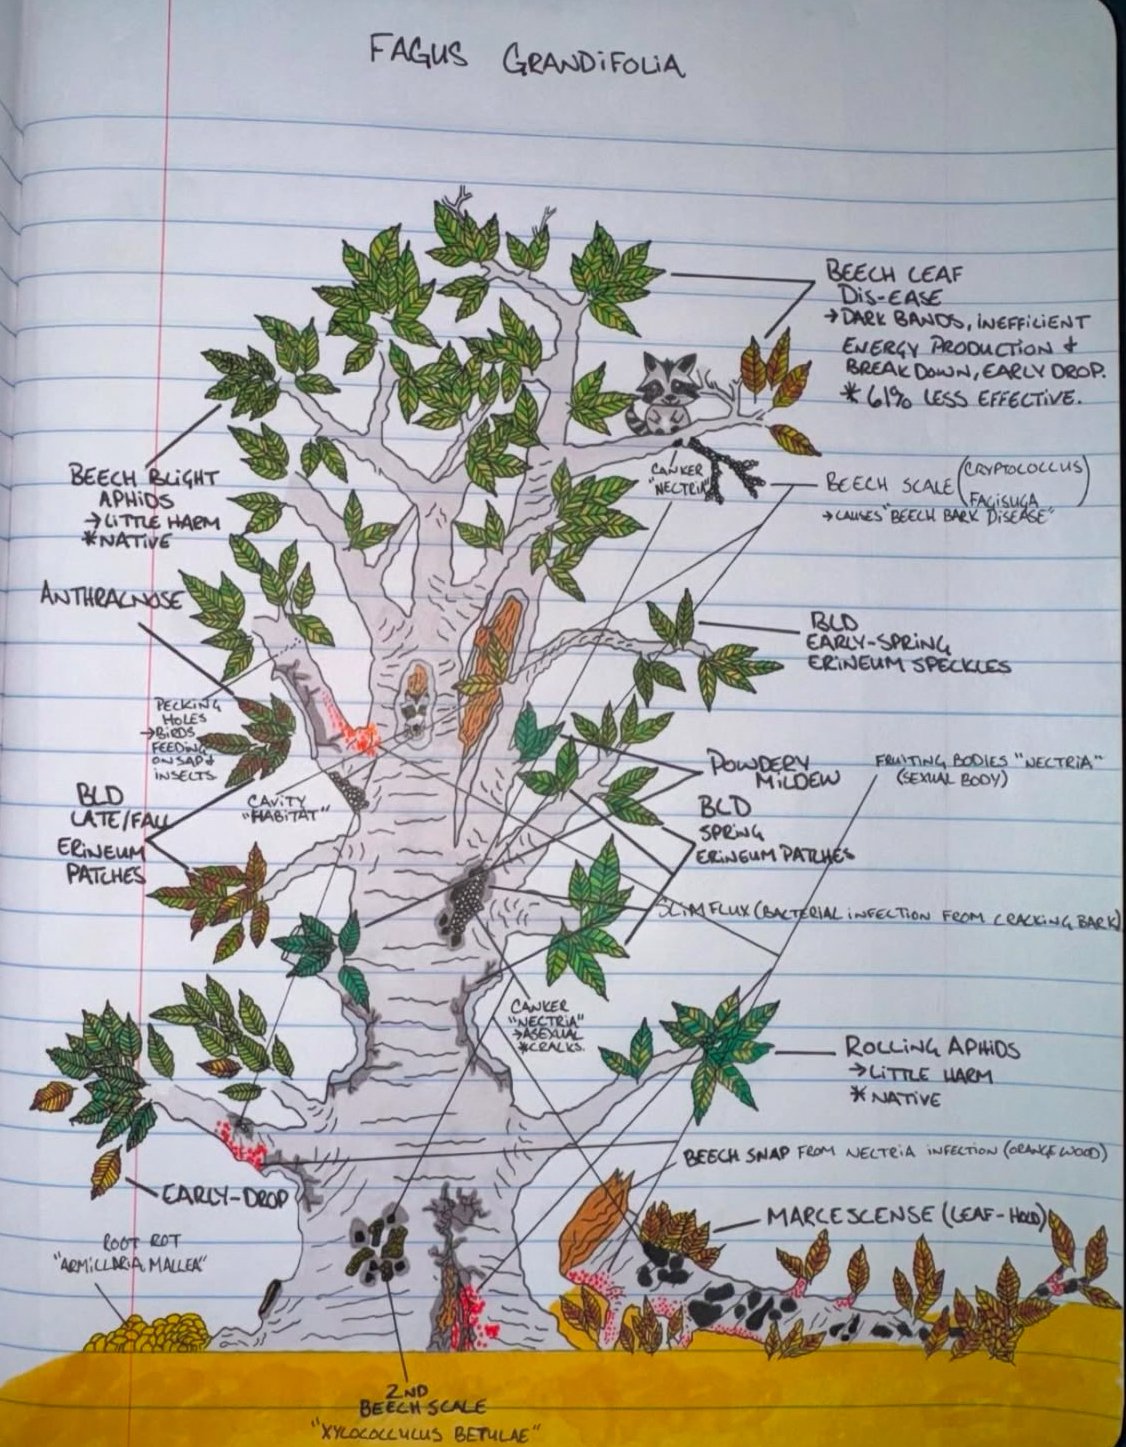 FAGUS GRANDIFOLIA
BEECH LEAF
DIS-EASE
→DARK BANDS, INEFFICIENT
ENERGY PRODUCTION &
BREAKDOWN, EARLY DROP.
* 61% LESS EFFECTIVE.
BEECH BLIGHT
APHIDS
→LITTLE HARM
*NATIVE
CANKER
"NECTRIA"
BEECH SCALE (CRYPTOCOCCUS
FAGISUGA)
→CAUSES "BEECH BARK DISEASE"
ANTHRACNOSE
BLD
EARLY-SPRING
ERINEUM SPECKLES
PECKING
HOLES
→BIRDS
FEEDING
ON SAP &
INSECTS
CAVITY
"HABITAT"
POWDERY
MILDEW
FRUITING BODIES "NECTRIA"
(SEXUAL BODY)
BLD
LATE/FALL
ERINEUM
PATCHES
BLD
SPRING
ERINEUM PATCHES
SLIM FLUX (BACTERIAL INFECTION FROM CRACKING BARK)
CANKER
"NECTRIA"
→ASEXUAL
*CRACKS.
ROLLING APHIDS
→LITTLE HARM
*NATIVE
BEECH SNAP FROM NECTRIA INFECTION (ORANGE WOOD)
EARLY-DROP
MARCESCENSE (LEAF-HOLD)
ROOT ROT
"ARMILLARIA MALLEA"
2ND
BEECH SCALE
"XYLOCOCCULUS BETULAE"